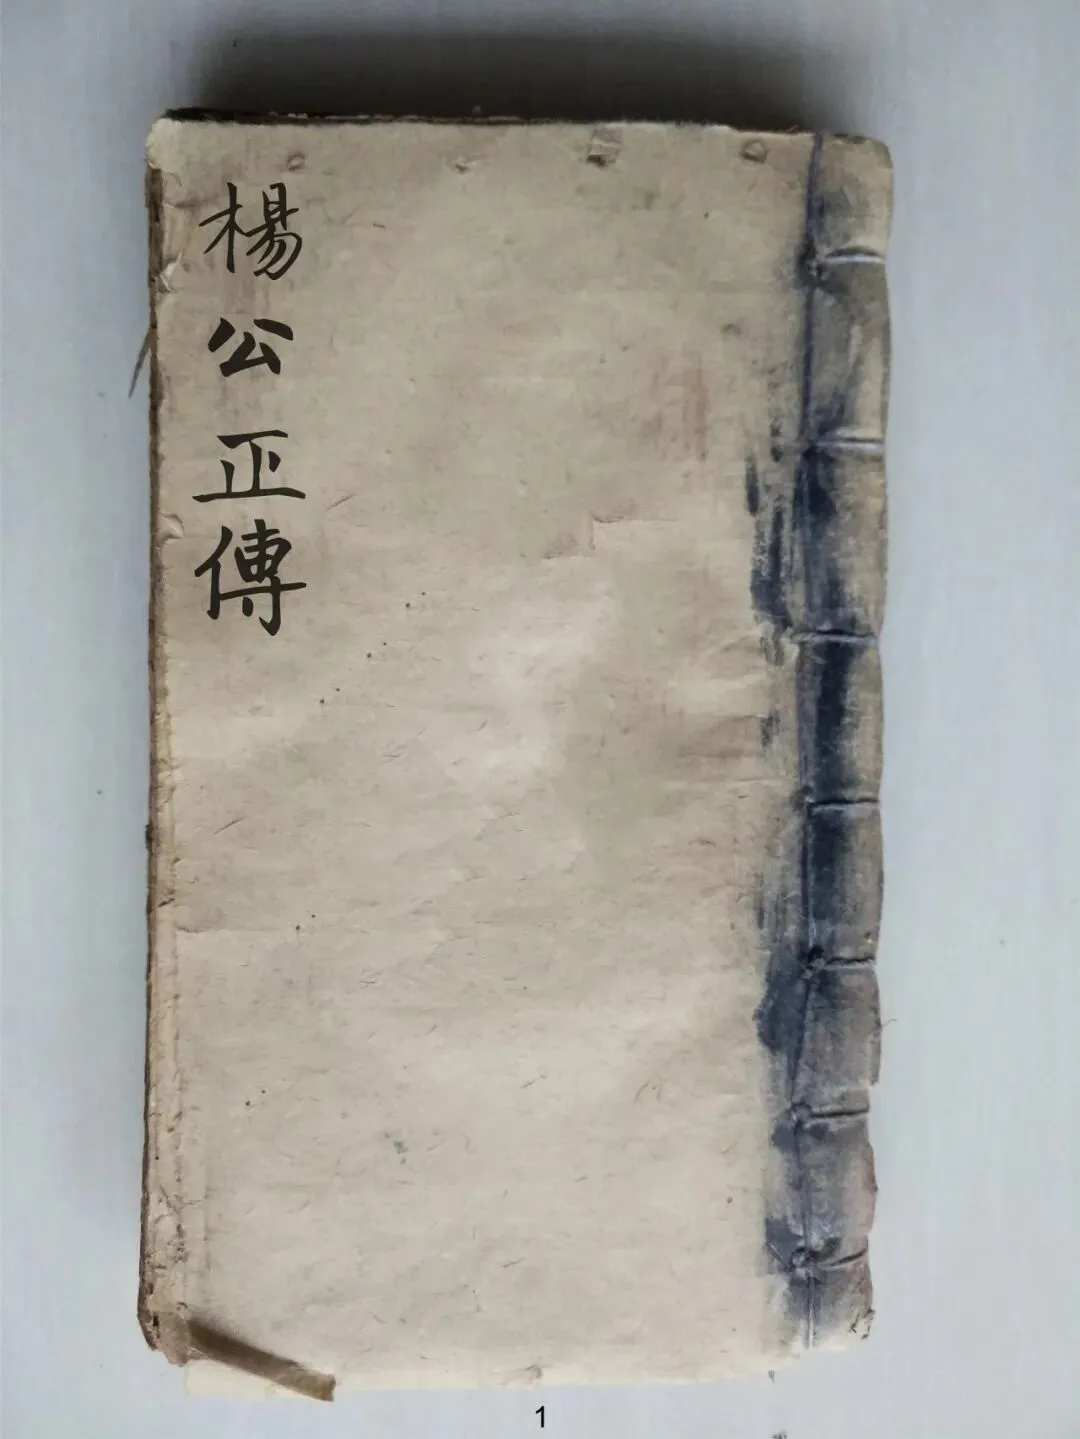 楊公正傳
1